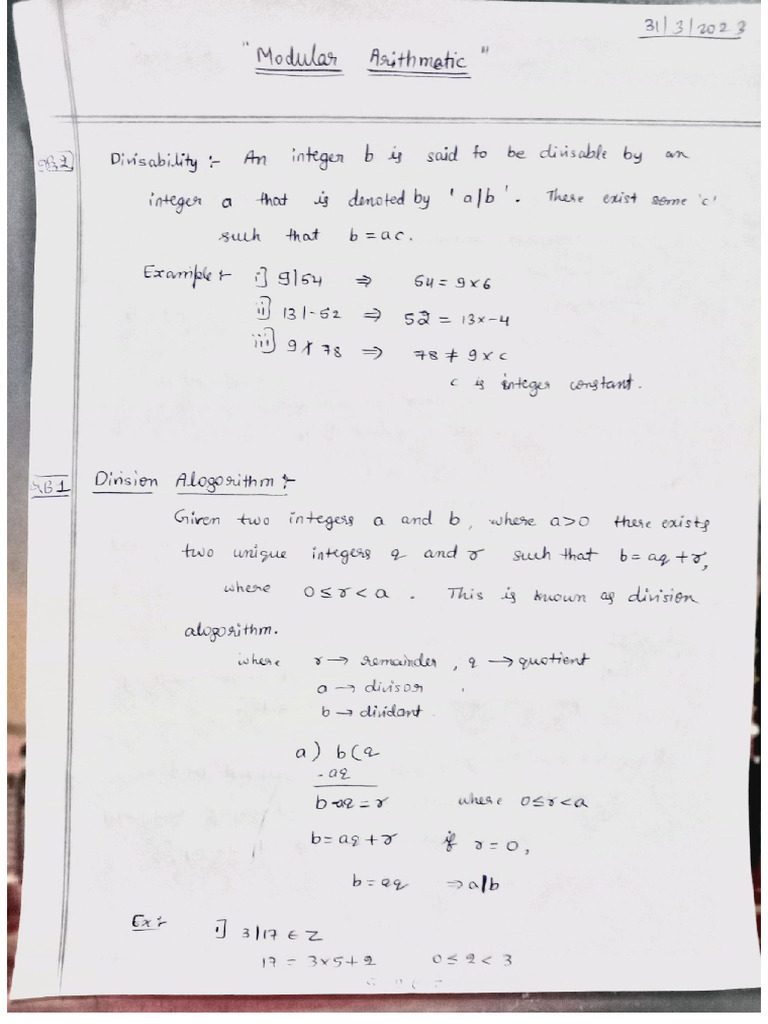 31/3/2023
"Modular Arithmatic"
Divisability :- An integer b is said to be divisable by an
integer a that is denoted by 'a/b'. There exist some 'c'
such that b = ac.
Example :- i] 9/54 ⇒ 54 = 9×6
ii] 13/-52 ⇒ 52 = 13×-4
iii] 9∤78 ⇒ 78 ≠ 9×c
c is integer constant.
QB1 Division Alogorithm :-
Given two integers a and b, where a>0 there exists
two unique integers q and r such that b = aq + r,
where 0≤r<a. This is known as division
alogorithm.
where r → remainder, q → quotient
a → divisor
b → dividant
a) b(q
-aq
b-aq = r where 0≤r<a
b = aq + r if r = 0,
b = aq ⇒ a/b
Ex :- i] 3/17 ∈ Z
17 = 3×5+2 0≤2<3